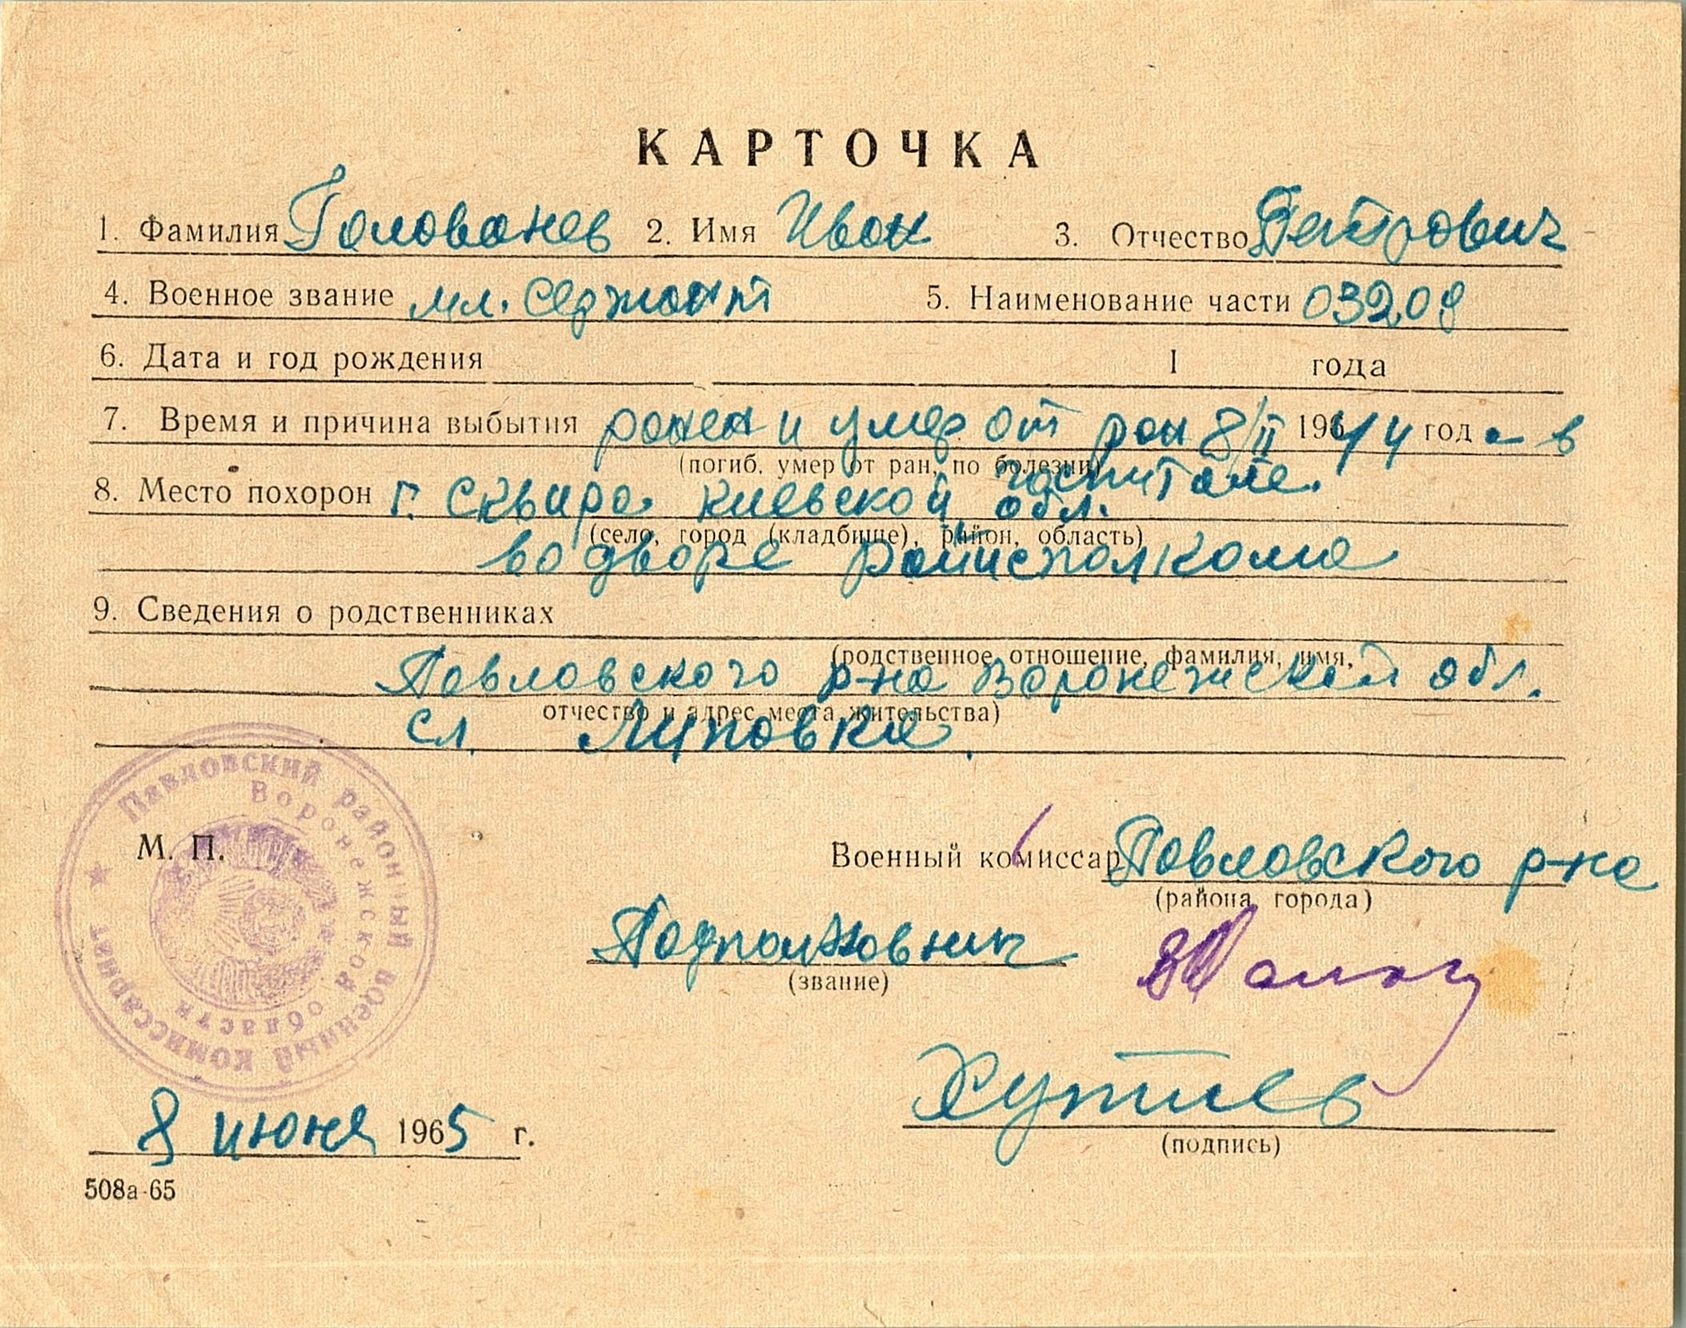 КАРТОЧКА
1. Фамилия Голованев 2. Имя Иван 3. Отчество Петрович
4. Военное звание мл. сержант 5. Наименование части 03209
6. Дата и год рождения 1 года
7. Время и причина выбытия ранен и умер от ран 8/II 1944 года в
(погиб, умер от ран, по болезни)
госпитале.
8. Место похорон г. Сквира Киевской обл.
(село, город (кладбище), район, область)
во дворе райисполкома
9. Сведения о родственниках
(родственное отношение, фамилия, имя,
Павловского р-на Воронежской обл.
отчество и адрес места жительства)
сл. Липовка.
Павловский районный военный комиссариат
Воронежской области
М. П.
Военный комиссар Павловского р-на
(района, города)
Подполковник
(звание)
Хутиев
(подпись)
8 июня 1965 г.
508а-65